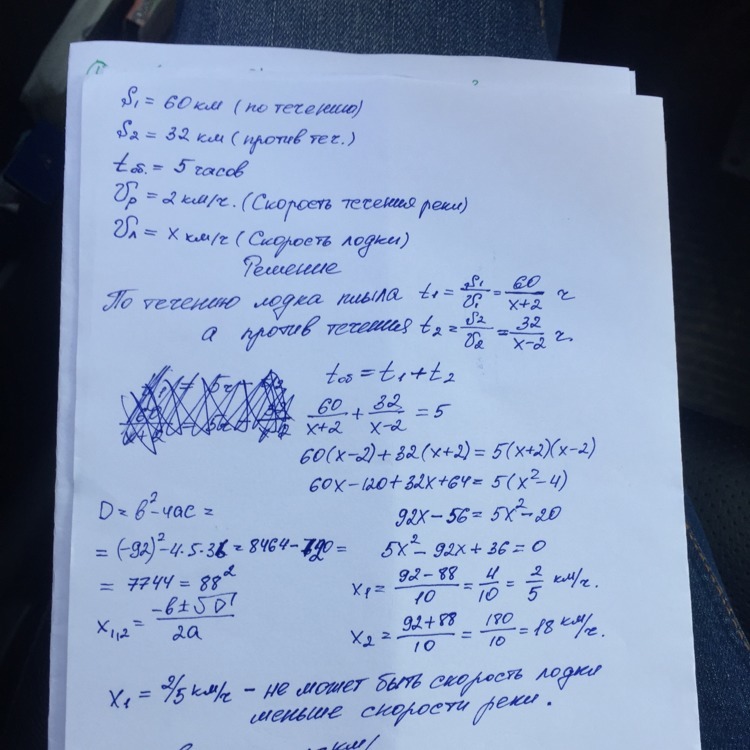 S₁ = 60 км (по течению)
S₂ = 32 км (против теч.)
tоб. = 5 часов
Vр = 2 км/ч. (Скорость течения реки)
Vл = x км/ч (Скорость лодки)
Решение
По течению лодка плыла t₁ = S₁/V₁ = 60/(x+2) ч
а против течения t₂ = S₂/V₂ = 32/(x-2) ч.
tоб = t₁ + t₂
60/(x+2) + 32/(x-2) = 5
60(x-2) + 32(x+2) = 5(x+2)(x-2)
60x - 120 + 32x + 64 = 5(x² - 4)
92x - 56 = 5x² - 20
5x² - 92x + 36 = 0
D = b² - 4ac =
= (-92)² - 4·5·36 = 8464 - 720 =
= 7744 = 88²
x₁,₂ = (-b ± √D)/2a
x₁ = (92-88)/10 = 4/10 = 2/5 км/ч.
x₂ = (92+88)/10 = 180/10 = 18 км/ч.
x₁ = 2/5 км/ч - не может быть скорость лодки
меньше скорости реки.